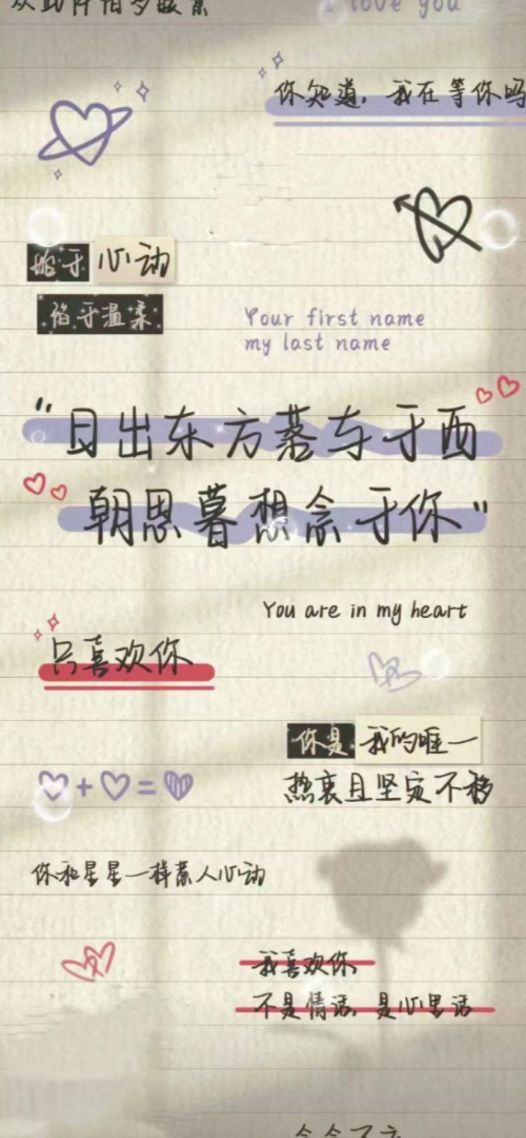 love you
你知道，我在等你吗
始于心动
陷于温柔
Your first name
my last name
"日出东方落车于西
朝思暮想念于你"
You are in my heart
只喜欢你
你是我的唯一
热衷且坚定不移
你和星星一样惹人心动
我喜欢你
不是情话，是心里话